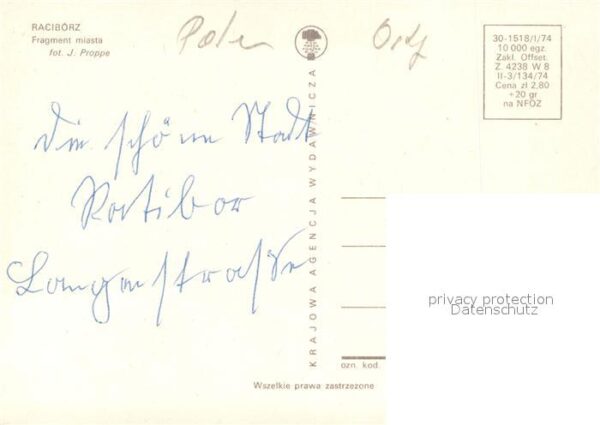 RACIBÓRZ
Fragment miasta
fot. J. Proppe
Polen
30-1518/I/74
10 000 egz.
Zakl. Offset.
Z. 4238 W 8
II-3/134/74
Cena zł 2,80
+20 gr
na NFOZ
die schöne Stadt
Ratibor
Langenstraße
KRAJOWA AGENCJA WYDAWNICZA
privacy protection
Datenschutz
ozn. kod.
Wszelkie prawa zastrzeżone